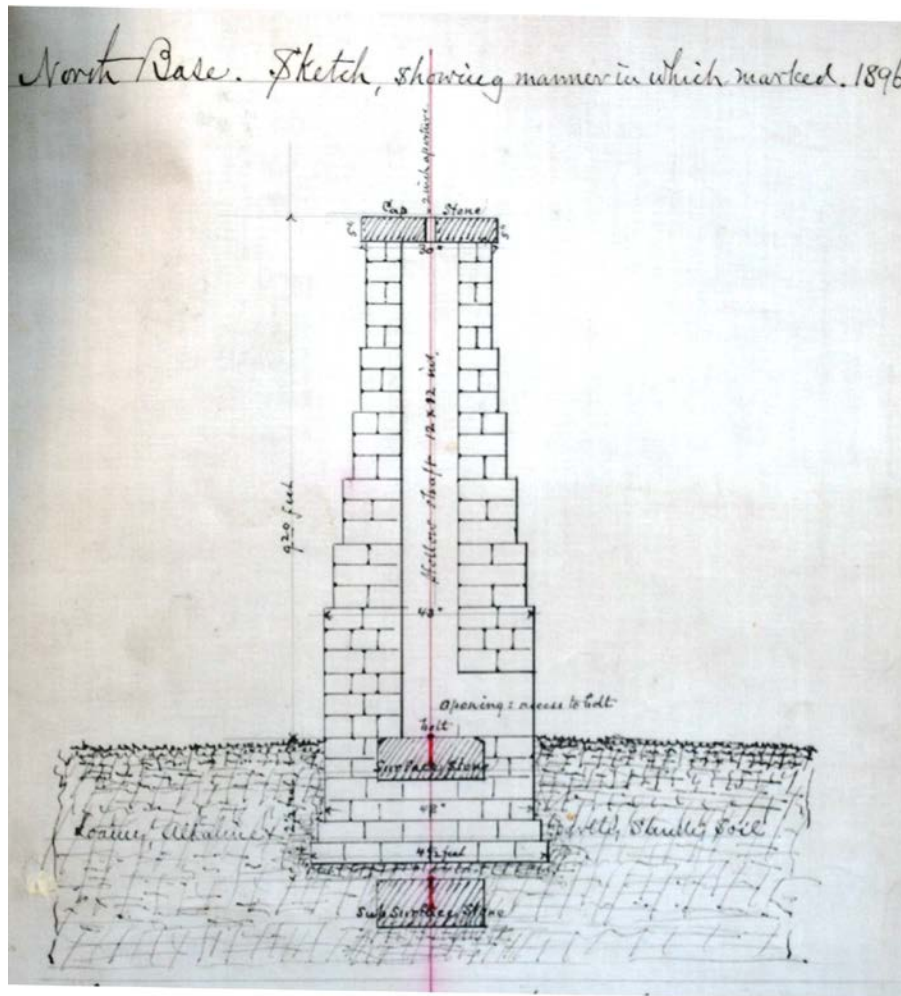 North Base. Sketch, showing manner in which marked. 1896
2 inch aperture
Cap Stone
5" 5"
36"
Hollow shaft 12 x 12 in.
9.20 feet
48"
Opening = access to bolt
bolt
Surface Stone
48"
Loamy, Alkaline
Soil
4 1/2 feet
Sub Surface Stone